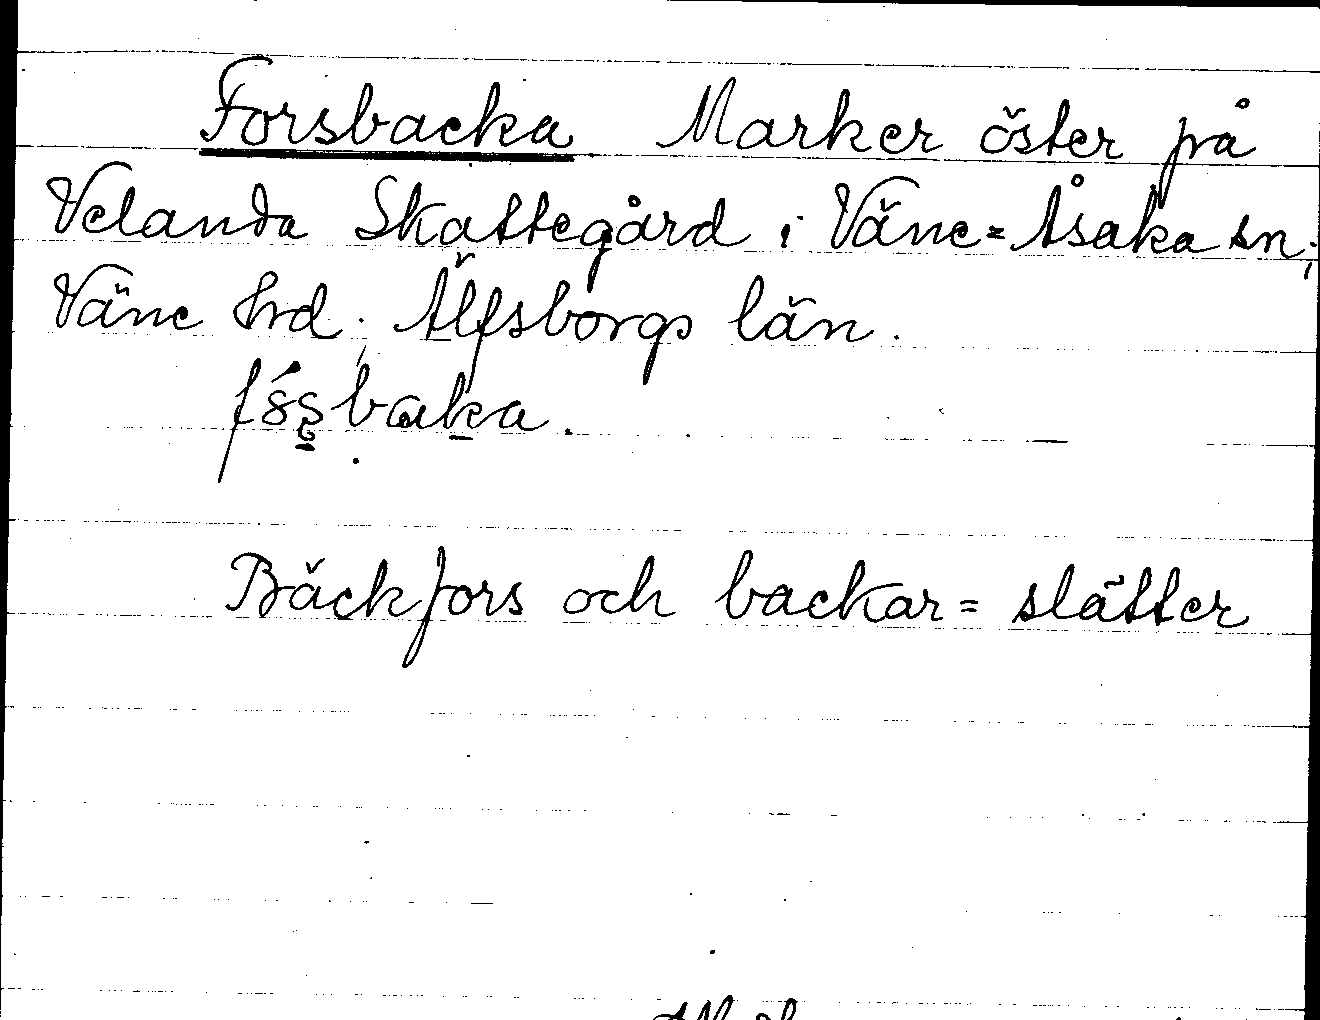 Forsbacka Marker öster på
Velanda Skattegård i Väne-Åsaka sn;
Väne hrd; Älfsborgs län.
Bäckfors och backar = slätter